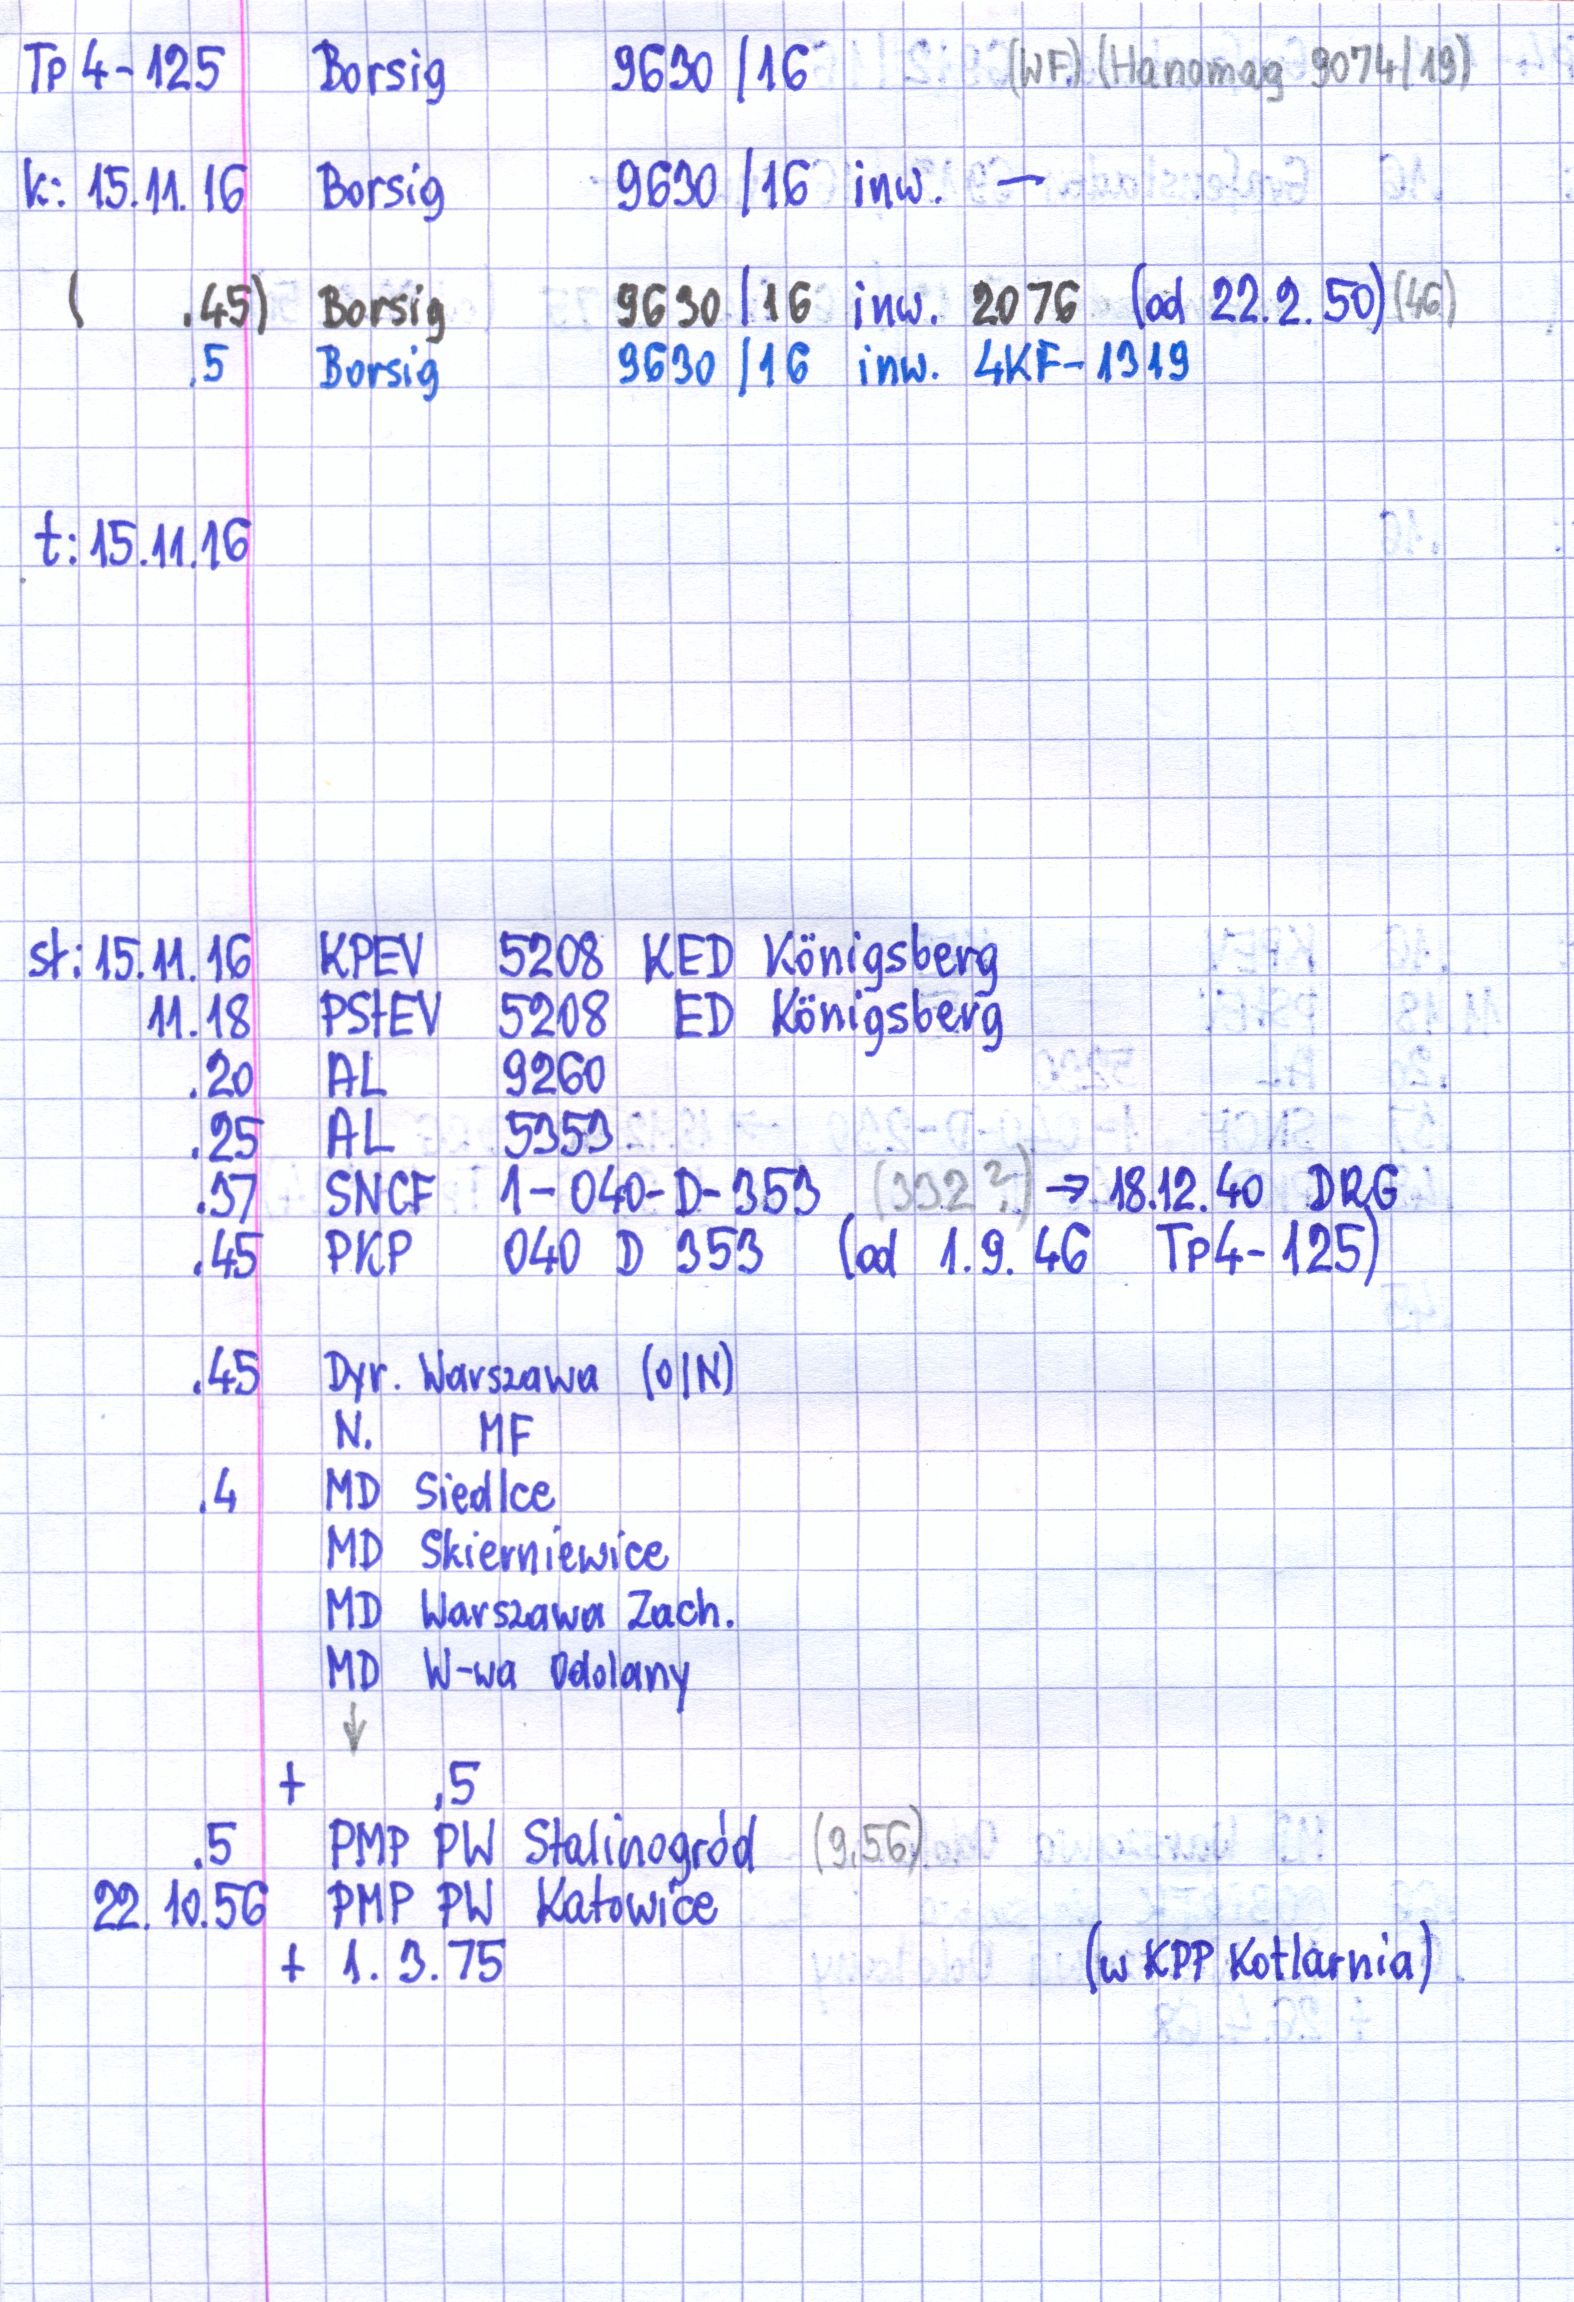 Tp 4-125 Borsig 9630/16 (WF) (Hanomag 9074/19)
k: 15.11.16 Borsig 9630/16 inw. —
( .45) Borsig 9630/16 inw. 2076 (od 22.2.50) (46)
.5 Borsig 9630/16 inw. 4KF-1319
t: 15.11.16
st: 15.11.16 KPEV 5208 KED Königsberg
11.18 PStEV 5208 ED Königsberg
.20 AL 9260
.25 AL 5353
.37 SNCF 1-040-D-353 (332?) → 18.12.40 DRG
.45 PKP 040 D 353 (od 1.9.46 Tp4-125)
.45 Dyr. Warszawa (O/N)
N. MF
.4 MD Siedlce
MD Skierniewice
MD Warszawa Zach.
MD W-wa Odolany
↓
+ .5
.5 PMP PW Stalinogród (9.56)
22.10.56 PMP PW Katowice
+ 1.3.75 (w KPP Kotlarnia)